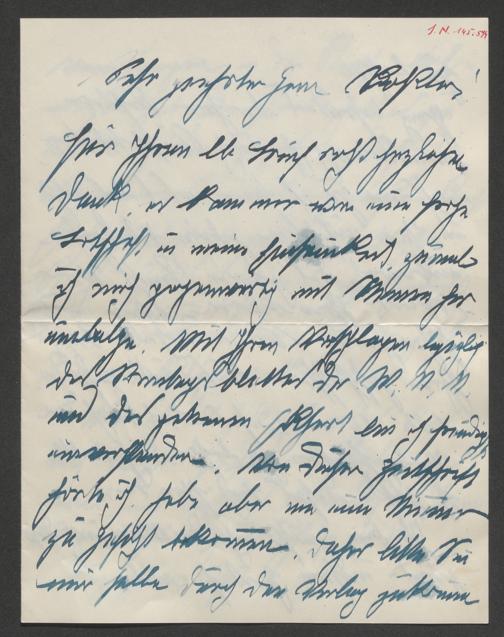 J. N. 145.594
Sehr geehrter Herr Doktor!
Für Ihren lb. Brief recht herzlichen
Dank, er kam mir wie eine frohe
Botschaft in meine Einsamkeit, zumal
ich mich gegenwärtig mit
Mit Ihren Vorschlägen bezüglich
des Sonntagsblattes der W. N. N.
und des getreuen Eckhart bin ich freudig
einverstanden. Von dieser Zeitschrift
hörte ich, habe aber nie eine Nummer
zu Gesicht bekommen. Daher bitte Sie
mir selbe durch den Verlag zukommen